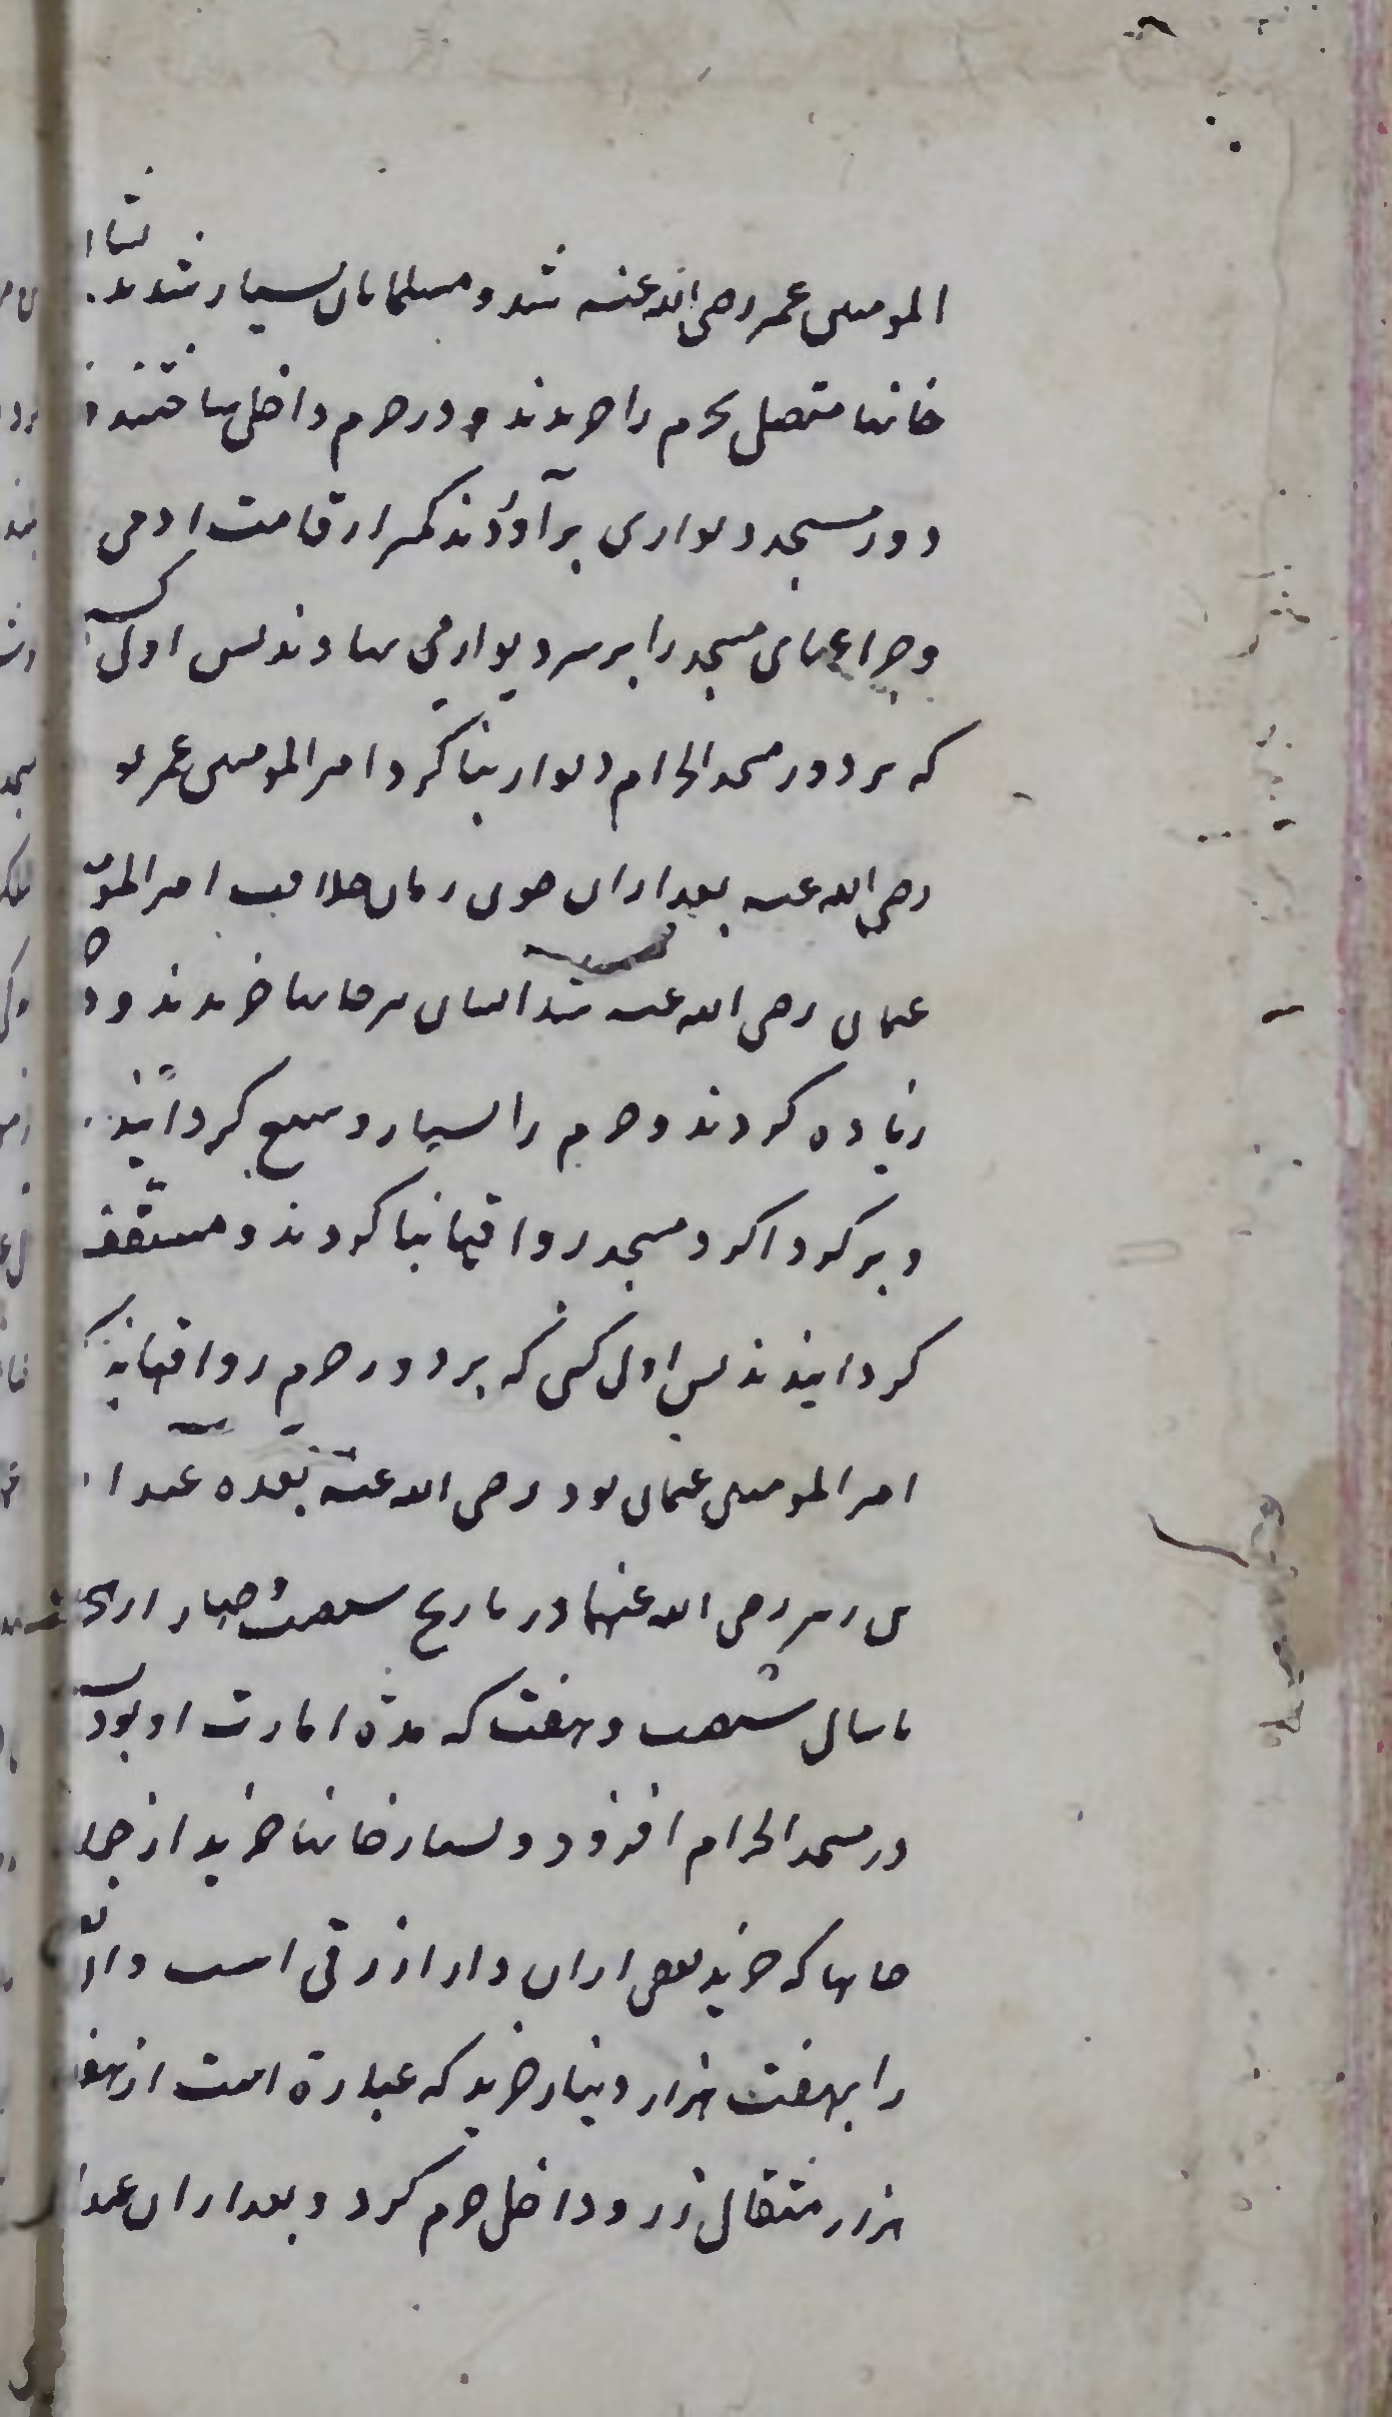 المومنین عمر رضی الله عنه شد و مسلمانان بسیار شدند ایشان
خانها متصل بحرم را خریدند و در حرم داخل ساختند و
دور مسجد دیواری برآوردند کمتر از قامت ادمی
و چراغهای مسجد را بر سر دیوار می نهادند پس اول کسی
که بر دور مسجد الحرام دیوار بنا کرد امیر المومنین عمر بود
رضی الله عنه بعد ازان چون زمان خلافت امیر المؤمنین
عثمان رضی الله عنه شد ایشان نیز خانها خریدند و در
زیاده کردند و حرم را بسیار وسیع کردانیدند
و بر کرداکرد مسجد رواقها بنا کردند و مسقف
کردانیدند پس اول کسی که بر دور حرم رواقها بنا کرد
امیر المومنین عثمان بود رضی الله عنه بعده عبد الله
بن زبیر رضی الله عنهما در تاریخ شصت و چهار از هجرت
تا سال شصت و هفت که مدة امارت او بود
در مسجد الحرام افزود و بسیار خانها خرید از جمله
خانها که خرید بعضی ازان دار ازرقی است و آن
را بهفت هزار دینار خرید که عبارة است از هفت
هزار مثقال زر و داخل حرم کرد و بعد ازان عبد